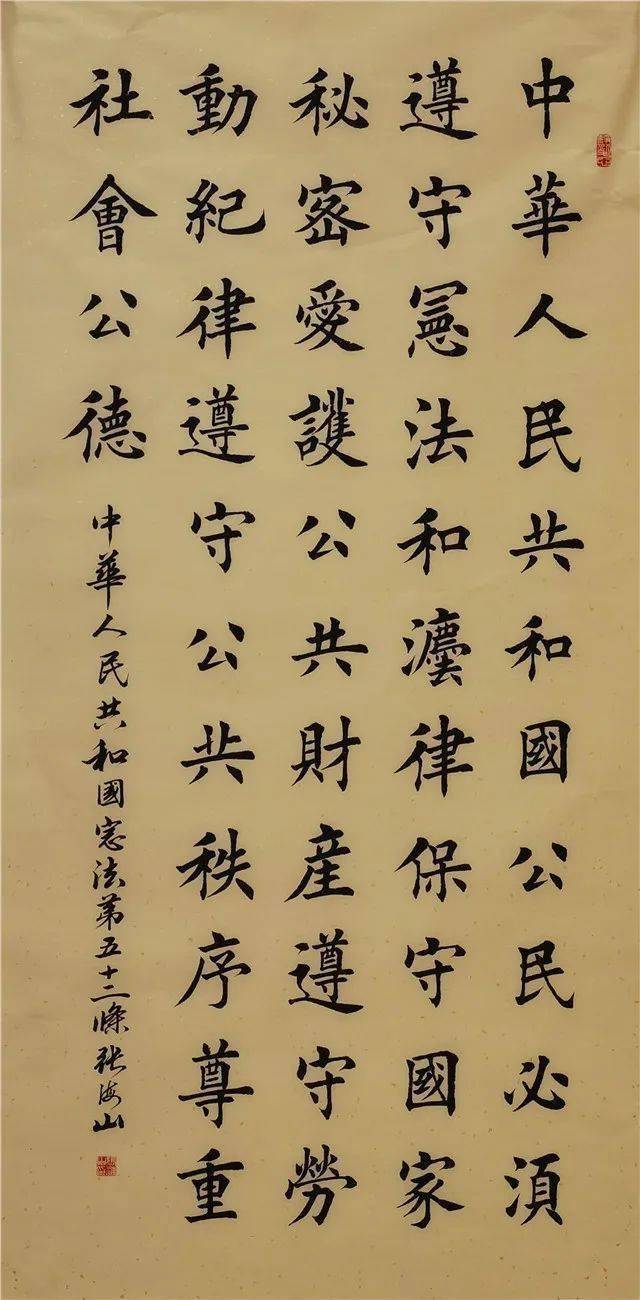 中華人民共和國公民必須
遵守憲法和灋律保守國家
秘密愛護公共財產遵守勞
動紀律遵守公共秩序尊重
社會公德
中華人民共和國憲法第五十三條張海山